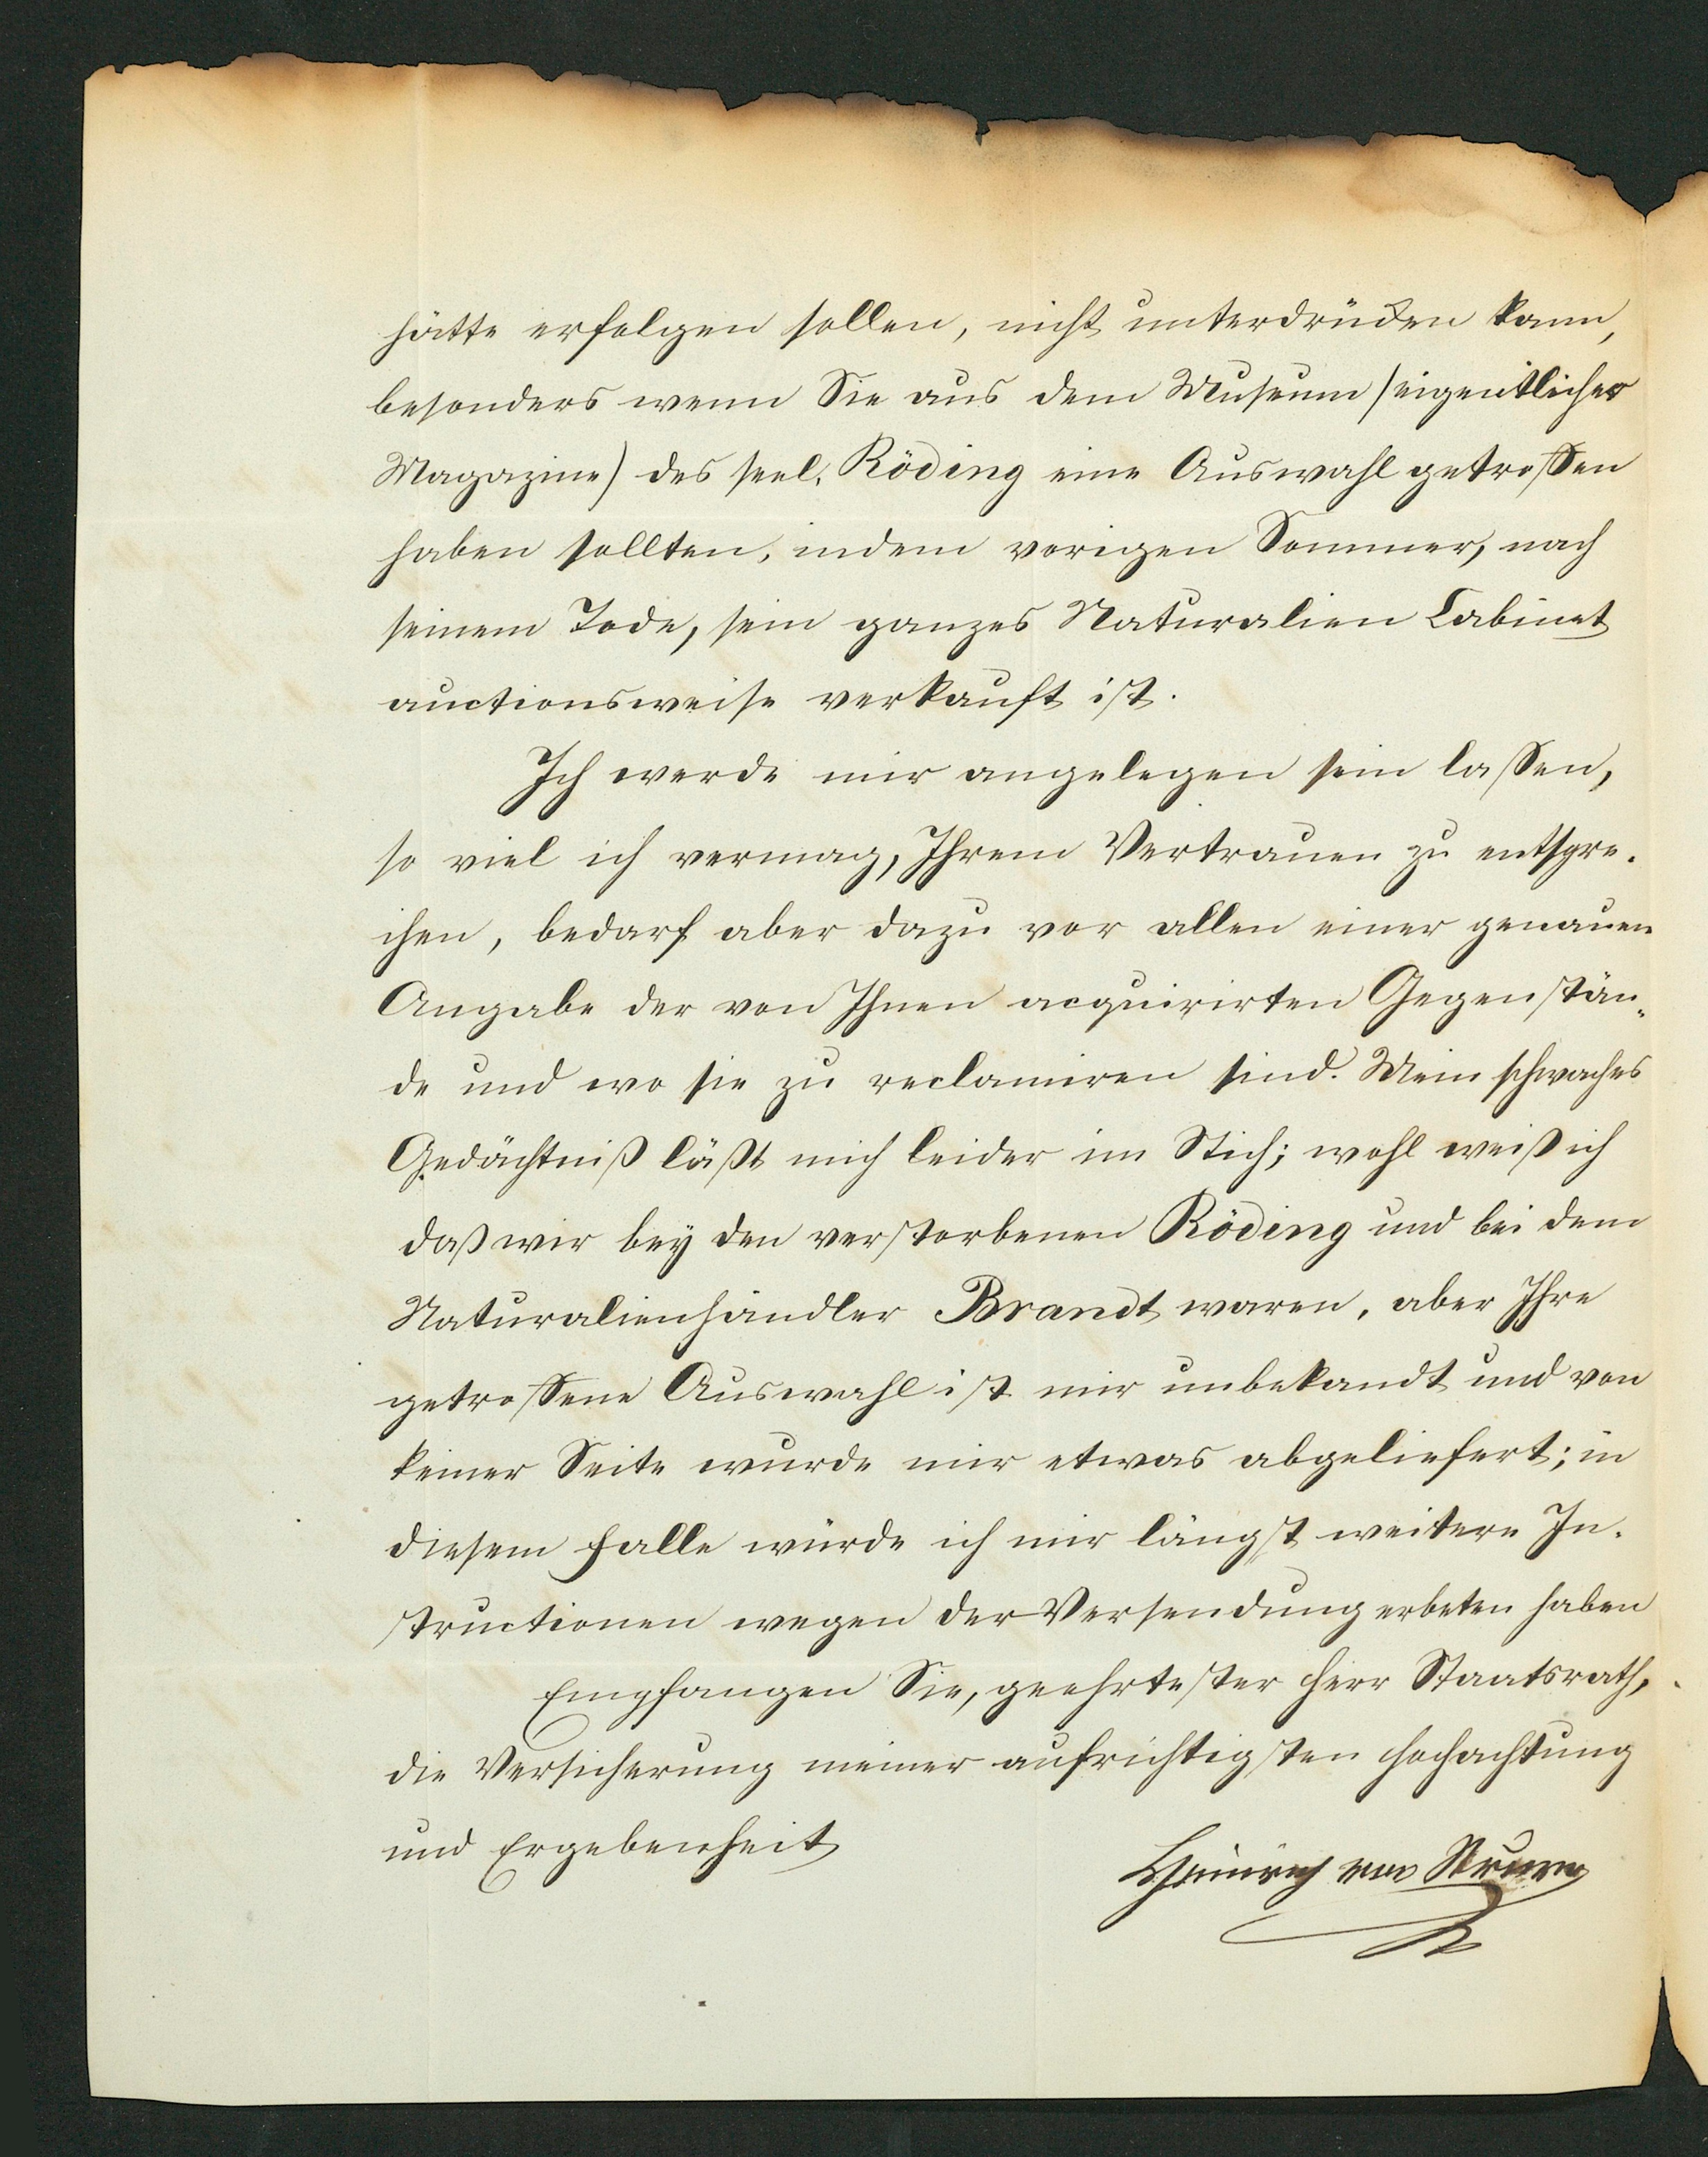 hätte erfolgen sollen, nicht unterdrücken kann,
besonders wenn Sie aus dem Museum (eigentlicher
Magazine) des seel. Röding eine Auswahl getroffen
haben sollten, indem vorigen Sommer, nach
seinem Tode, sein ganzes Naturalien Cabinet
auctionsweise verkauft ist.
Ich werde mir angelegen sein lassen,
so viel ich vermag, Ihrem Vertrauen zu entspre-
chen, bedarf aber dazu vor allen einer genauen
Angabe der von Ihnen acquirirten Gegenstän-
de und wo sie zu reclamiren sind. Mein schwaches
Gedächtniß läßt mich leider im Stich; wohl weiß ich
daß wir bey den verstorbenen Röding und bei dem
Naturalienhändler Brandt waren, aber Ihre
getroffene Auswahl ist mir unbekandt und von
keiner Seite wurde mir etwas abgeliefert; in
diesem Falle würde ich mir längst weitere In-
structionen wegen der Versendung erbeten haben
Empfangen Sie, geehrtester Herr Staatsrath,
die Versicherung meiner aufrichtigsten Hochachtung
und Ergebenheit
Heinrich von Struve